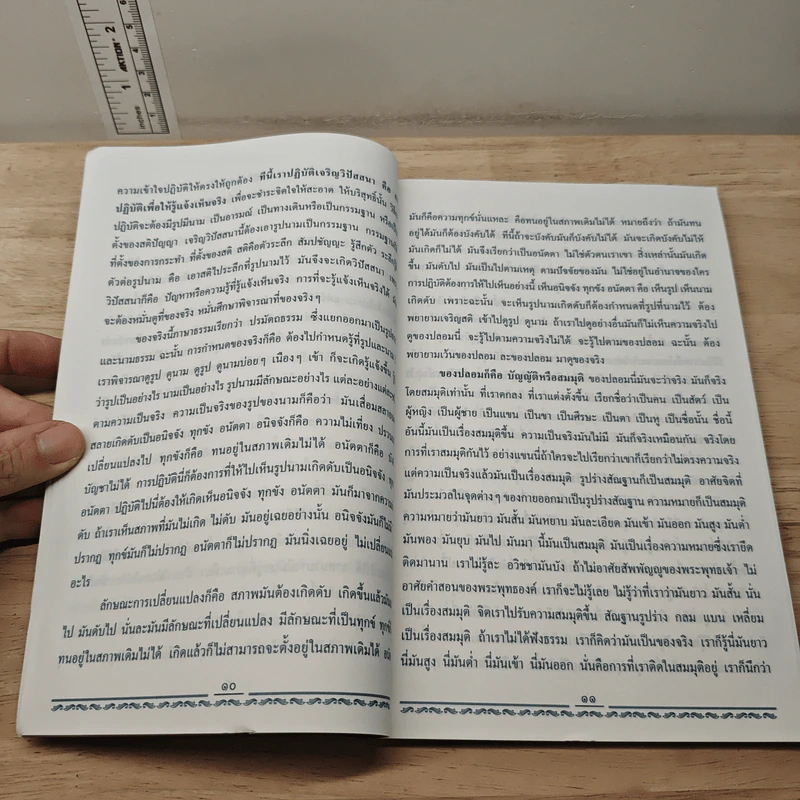 AKTION
inches
1
2
ความเข้าใจปฏิบัติให้ตรงให้ถูกต้อง ที่นี้เราปฏิบัติเจริญวิปัสสนา คือ
ปฏิบัติเพื่อให้รู้แจ้งเห็นจริง เพื่อจะชำระจิตใจให้สะอาด ให้บริสุทธิ์นั้น
ปฏิบัติจะต้องมีรูปมีนาม เป็นอารมณ์ เป็นทางเดินหรือเป็นกรรมฐาน
ตั้งของสติปัญญา เจริญวิปัสสนานี้ต้องเอารูปนามเป็นกรรมฐาน
ที่ตั้งของการกระทำ ที่ตั้งของสติ สติคือตัวระลึก สัมปชัญญะ รู้สึกตัว
ตัวต่อรูปนาม คือ เอาสติไประลึกที่รูปนามไว้ มันจึงจะเกิดวิปัสสนา
วิปัสสนาก็คือ ปัญหาหรือความรู้ที่รู้แจ้งเห็นจริง การที่จะรู้แจ้งเห็นจริงได้
จะต้องหมั่นดูที่ของจริง หมั่นศึกษาพิจารณาที่ของจริงๆ
ของจริงนี้ภาษาธรรมเรียกว่า ปรมัตถธรรม ซึ่งแยกออกมาเป็นรูป
และนามธรรม ฉะนั้น การกำหนดของจริงก็คือ ต้องไปกำหนดรู้ที่รูปและนาม
เราพิจารณาดูรูป ดูนาม ดูรูป ดูนามบ่อยๆ เนืองๆ เข้า ก็จะเกิดรู้แจ้งขึ้น
ว่ารูปเป็นอย่างไร นามเป็นอย่างไร รูปนามมีลักษณะอย่างไร แต่ละอย่าง
ตามความเป็นจริง ความเป็นจริงของรูปของนามก็คือว่า มันเสื่อม
สลายเกิดดับเป็นอนิจจัง ทุกขัง อนัตตา อนิจจังก็คือ ความไม่เที่ยง
เปลี่ยนแปลงไป ทุกขังก็คือ ทนอยู่ในสภาพเดิมไม่ได้ อนัตตาก็คือ
บัญชาไม่ได้ การปฏิบัตินี้ก็ต้องการที่ให้ไปเห็นรูปนามเกิดดับเป็นอนิจจัง ทุกขัง
อนัตตา ปฏิบัติไปนี่ต้องให้เกิดเห็นอนิจจัง ทุกขัง อนัตตา มันก็มาจากความ
ดับ ถ้าเราเห็นสภาพที่มันไม่เกิด ไม่ดับ มันอยู่เฉยอย่างนั้น อนิจจังมันก็ไม่
ปรากฏ ทุกข์มันก็ไม่ปรากฏ อนัตตาก็ไม่ปรากฏ มันนิ่งเฉยอยู่ ไม่เปลี่ยน
อะไร
ลักษณะการเปลี่ยนแปลงก็คือ สภาพมันต้องเกิดดับ เกิดขึ้นแล้ว
ไป มันดับไป นั่นละมันมีลักษณะที่เปลี่ยนแปลง มีลักษณะที่เป็นทุกข์
ทนอยู่ในสภาพเดิมไม่ได้ เกิดแล้วก็ไม่สามารถจะตั้งอยู่ในสภาพเดิมได้
๑๐
มันก็คือความทุกข์นั่นแหละ คือทนอยู่ในสภาพเดิมไม่ได้ หมายถึงว่า ถ้ามันทน
อยู่ได้มันก็ต้องบังคับได้ ทีนี้ถ้าจะบังคับมันก็บังคับไม่ได้ มันจะเกิดบังคับไม่ให้
มันเกิดก็ไม่ได้ มันจึงเรียกว่าเป็นอนัตตา ไม่ใช่ตัวคนเราเขา สิ่งเหล่านั้นมันเกิด
ขึ้น มันดับไป มันเป็นไปตามเหตุ ตามปัจจัยของมัน ไม่ใช่อยู่ในอำนาจของใคร
การปฏิบัติต้องทำให้ไปเห็นอย่างนี้ เห็นอนิจจัง ทุกขัง อนัตตา คือ เห็นรูป เห็นนาม
เกิดดับ เพราะฉะนั้น จะเห็นรูปนามเกิดดับก็ต้องกำหนดที่รูปที่นามไว้ ต้อง
พยายามเจริญสติ เข้าไปดูรูป ดูนาม ถ้าเราไปดูอย่างอื่นมันก็ไม่เห็นความจริงไป
ดูของปลอมนี่ จะรู้ไปตามความจริงไม่ได้ จะรู้ไปตามของปลอม ฉะนั้น ต้อง
พยายามเว้นของปลอม ละของปลอม มาดูของจริง
ของปลอมก็คือ บัญญัติหรือสมมุติ ของปลอมนี่มันจะว่าจริง มันก็จริง
โดยสมมุติเท่านั้น ที่เราตกลง ที่เราแต่งตั้งขึ้น เรียกชื่อว่าเป็นคน เป็นสัตว์ เป็น
ผู้หญิง เป็นผู้ชาย เป็นแขน เป็นขา เป็นศีรษะ เป็นตา เป็นหู เป็นชื่อนั้น ชื่อนี้
อันนี้มันเป็นเรื่องสมมุติขึ้น ความเป็นจริงมันไม่มี มันก็จริงเหมือนกัน จริงโดย
การที่เราสมมุติกันไว้ อย่างแขนนี่ถ้าใครจะไปเรียกว่าเขาก็เรียกว่าไม่ตรงความจริง
แต่ความเป็นจริงแล้วมันเป็นเรื่องสมมุติ รูปร่างสัณฐานก็เป็นสมมุติ อาศัยจิตที่
มันประมวลในจุดต่างๆ ของกายออกมาเป็นรูปร่างสัณฐาน ความหมายก็เป็นสมมุติ
ความหมายว่ามันยาว มันสั้น มันหยาบ มันละเอียด มันเข้า มันออก มันสูง มันต่ำ
มันพอง มันยุบ มันไป มันมา นี่มันเป็นสมมุติ มันเป็นเรื่องความหมายซึ่งเรายึด
ติดมานาน เราไม่รู้ละ อวิชชามันบัง ถ้าไม่อาศัยสัพพัญญูของพระพุทธเจ้า ไม่
อาศัยคำสอนของพระพุทธองค์ เราก็จะไม่รู้เลย ไม่รู้ว่าที่เราว่ามันยาว มันสั้น นั่น
เป็นเรื่องสมมุติ จิตเราไปรับความสมมุติขึ้น สัณฐานรูปร่าง กลม แบน เหลี่ยม
เป็นเรื่องสมมุติ ถ้าเราไม่ได้ฟังธรรม เราก็คิดว่ามันเป็นของจริง เราก็รู้นี่มันยาว
นี่มันสูง นี่มันต่ำ นี่มันเข้า นี่มันออก นั่นคือการที่เราติดในสมมุติอยู่ เราก็นึกว่า
๑๑